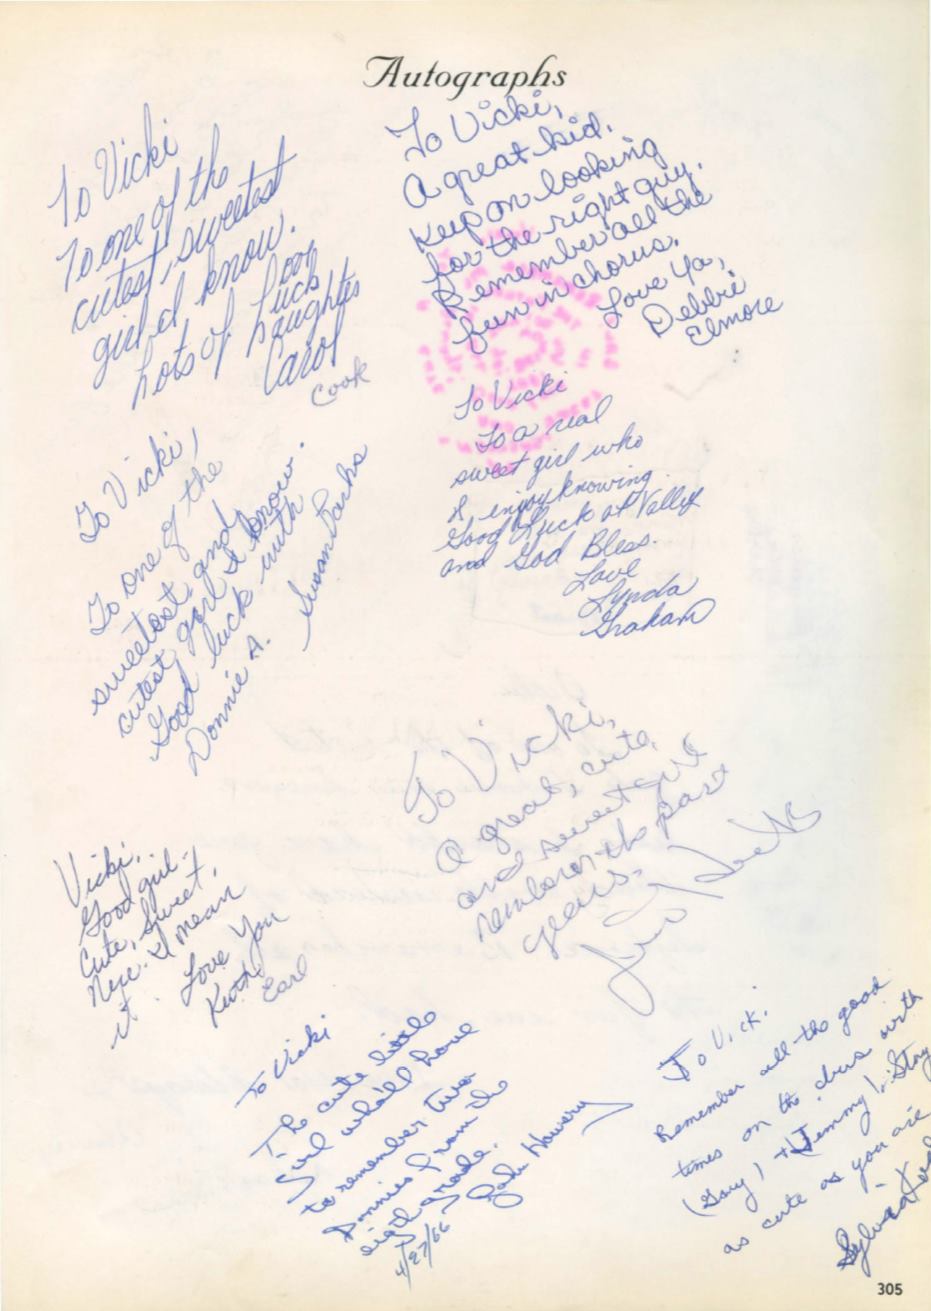 Autographs
To Vicki
To one of the
cutest, sweetest
girl I know.
Lots of luck
love
Carol
Cook
To Vicki,
A great kid.
Keep on looking
for the right guy.
Remember all the
fun in chorus.
Love Ya,
Debbie
Elmore
To Vicki,
To one of the
sweetest and
cutest girl I know.
Good luck with
Donnie A.
Susan Banks
To Vicki
To a real
sweet girl who
I enjoy knowing
Good luck at Valley
and God Bless.
Love
Lynda
Graham
To Vicki,
A great, cute,
and sweet girl
the past
years.
Vicki,
Good girl.
Cute, Sweet,
Nice. I mean
it
Love You
Keith
Earl
To Vicki
The cute little
Girl
to remember two
Donnies from the
grade.
4/27/66
To Vicki
Remember all the good
times on the with
(Gary) + (Jemmy) Stay
as cute as you are
Sylvia
305